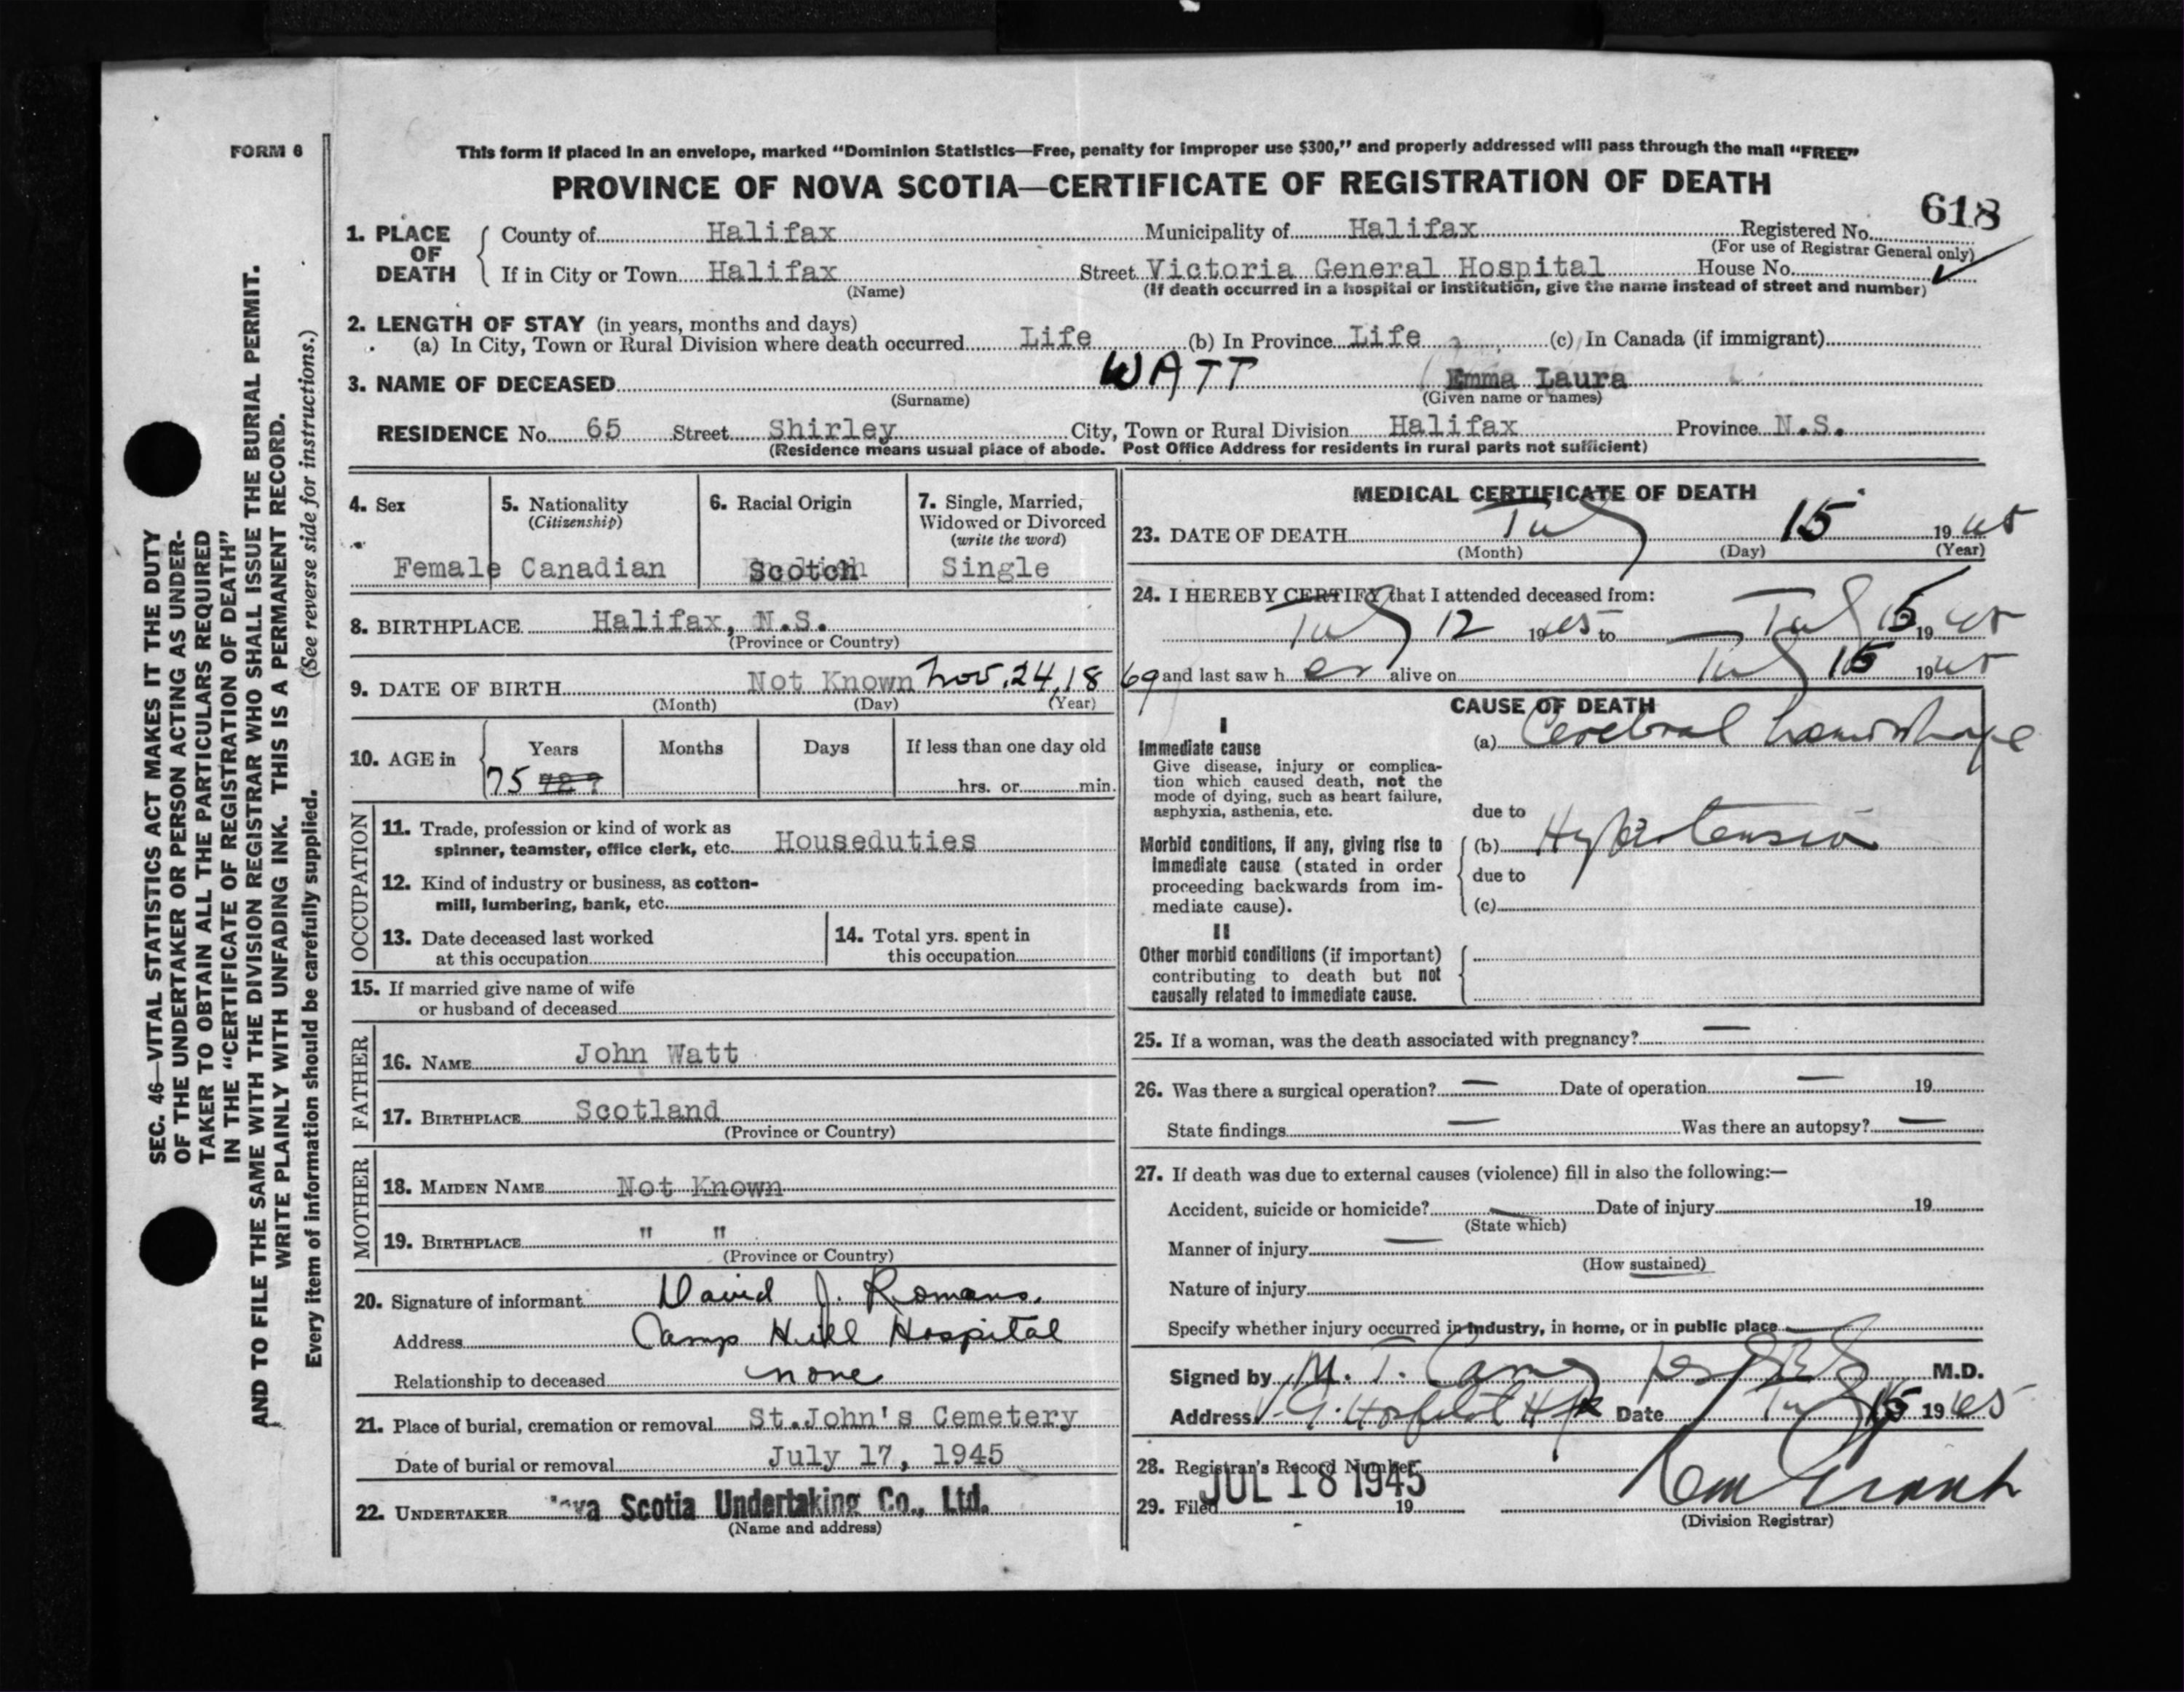 FORM 6
This form if placed in an envelope, marked "Dominion Statistics—Free, penalty for improper use $300," and properly addressed will pass through the mail "FREE"
PROVINCE OF NOVA SCOTIA—CERTIFICATE OF REGISTRATION OF DEATH
618
1. PLACE OF DEATH
County of Halifax Municipality of Halifax Registered No.
(For use of Registrar General only)
If in City or Town Halifax Street Victoria General Hospital House No.
(Name) (If death occurred in a hospital or institution, give the name instead of street and number)
2. LENGTH OF STAY (in years, months and days)
(a) In City, Town or Rural Division where death occurred Life (b) In Province Life (c) In Canada (if immigrant)
3. NAME OF DECEASED WATT Emma Laura
(Surname) (Given name or names)
RESIDENCE No. 65 Street Shirley City, Town or Rural Division Halifax Province N.S.
(Residence means usual place of abode. Post Office Address for residents in rural parts not sufficient)
4. Sex
Female
5. Nationality
(Citizenship)
Canadian
6. Racial Origin
Scotch
7. Single, Married,
Widowed or Divorced
(write the word)
Single
8. BIRTHPLACE Halifax, N.S.
(Province or Country)
9. DATE OF BIRTH Not Known Nov. 24, 1869
(Month) (Day) (Year)
10. AGE in
Years Months Days If less than one day old
75 72 ? hrs. or min.
OCCUPATION
11. Trade, profession or kind of work as
spinner, teamster, office clerk, etc. Houseduties
12. Kind of industry or business, as cotton-
mill, lumbering, bank, etc.
13. Date deceased last worked
at this occupation
14. Total yrs. spent in
this occupation
15. If married give name of wife
or husband of deceased
FATHER
16. NAME John Watt
17. BIRTHPLACE Scotland
(Province or Country)
MOTHER
18. MAIDEN NAME Not Known
19. BIRTHPLACE " "
(Province or Country)
20. Signature of informant David J. Romans.
Address Camp Hill Hospital
Relationship to deceased none
21. Place of burial, cremation or removal St. John's Cemetery
Date of burial or removal July 17, 1945
22. UNDERTAKER ova Scotia Undertaking Co., Ltd.
(Name and address)
MEDICAL CERTIFICATE OF DEATH
23. DATE OF DEATH July 15 1945
(Month) (Day) (Year)
24. I HEREBY CERTIFY that I attended deceased from:
July 12 1945 to July 15 1945
and last saw her alive on July 15 1945
CAUSE OF DEATH
I
Immediate cause
Give disease, injury or complica-
tion which caused death, not the
mode of dying, such as heart failure,
asphyxia, asthenia, etc.
(a) Cerebral hemorrhage
due to
Morbid conditions, if any, giving rise to
immediate cause (stated in order
proceeding backwards from im-
mediate cause).
(b) Hypertension
due to
(c)
II
Other morbid conditions (if important)
contributing to death but not
causally related to immediate cause.
25. If a woman, was the death associated with pregnancy? —
26. Was there a surgical operation? — Date of operation — 19
State findings — Was there an autopsy? —
27. If death was due to external causes (violence) fill in also the following:—
Accident, suicide or homicide? — Date of injury 19
(State which)
Manner of injury —
(How sustained)
Nature of injury
Specify whether injury occurred in industry, in home, or in public place —
Signed by M. T. M.D.
Address V. G. Hospital Hfx Date July 15 1945
28. Registrar's Record Number
29. Filed JUL 18 1945 19
(Division Registrar)
SEC. 46—VITAL STATISTICS ACT MAKES IT THE DUTY
OF THE UNDERTAKER OR PERSON ACTING AS UNDER-
TAKER TO OBTAIN ALL THE PARTICULARS REQUIRED
IN THE "CERTIFICATE OF REGISTRATION OF DEATH"
AND TO FILE THE SAME WITH THE DIVISION REGISTRAR WHO SHALL ISSUE THE BURIAL PERMIT.
WRITE PLAINLY WITH UNFADING INK. THIS IS A PERMANENT RECORD.
Every item of information should be carefully supplied. (See reverse side for instructions.)